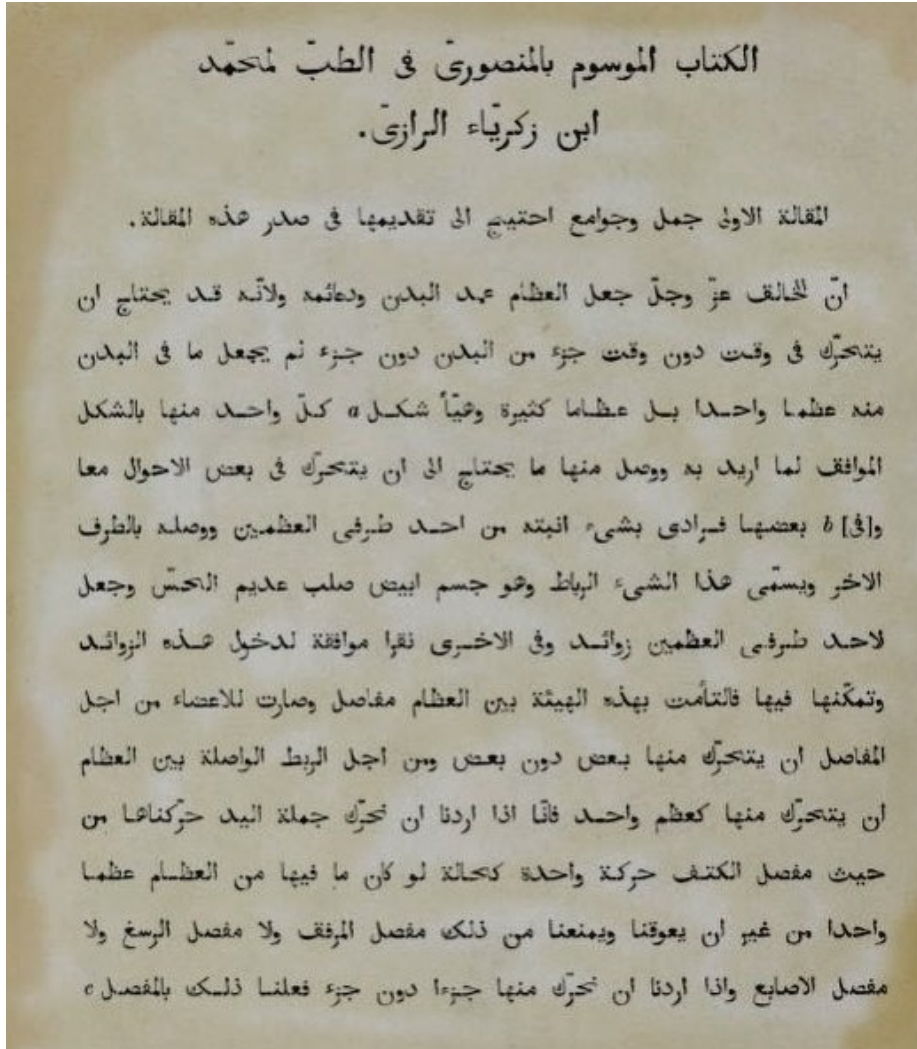 الكتاب الموسوم بالمنصورىّ فى الطبّ لمحمّد
ابن زكريّاء الرازىّ.
المقالة الاولى جمل وجوامع احتيج الى تقديمها فى صدر هذه المقالة.
انّ الخالق عزّ وجلّ جعل العظام عمد البدن ودعائمه ولانّه قد يحتاج ان
يتحرّك فى وقت دون وقت جزء من البدن دون جزء لم يجعل ما فى البدن
منه عظما واحدا بل عظاما كثيرة وهيّأ شكل a كلّ واحد منها بالشكل
الموافق لما اريد به ووصل منها ما يحتاج الى ان يتحرّك فى بعض الاحوال معا
و[فى] b بعضها فرادى بشىء انبته من احد طرفى العظمين ووصله بالطرف
الاخر ويسمّى هذا الشىء الرباط وهو جسم ابيض صلب عديم الحسّ وجعل
لاحد طرفى العظمين زوائد وفى الاخرى نقرا موافقة لدخول هذه الزوائد
وتمكّنها فيها فالتأمت بهذه الهيئة بين العظام مفاصل وصارت للاعضاء من اجل
المفاصل ان يتحرّك منها بعض دون بعض ومن اجل الربط الواصلة بين العظام
ان يتحرّك منها كعظم واحد فانّا اذا اردنا ان نحرّك جملة اليد حرّكناها من
حيث مفصل الكتف حركة واحدة كحالة لو كان ما فيها من العظام عظما
واحدا من غير ان يعوقنا ويمنعنا من ذلك مفصل المرفق ولا مفصل الرسغ ولا
مفصل الاصابع واذا اردنا ان نحرّك منها جزءا دون جزء فعلنا ذلك بالمفصل c